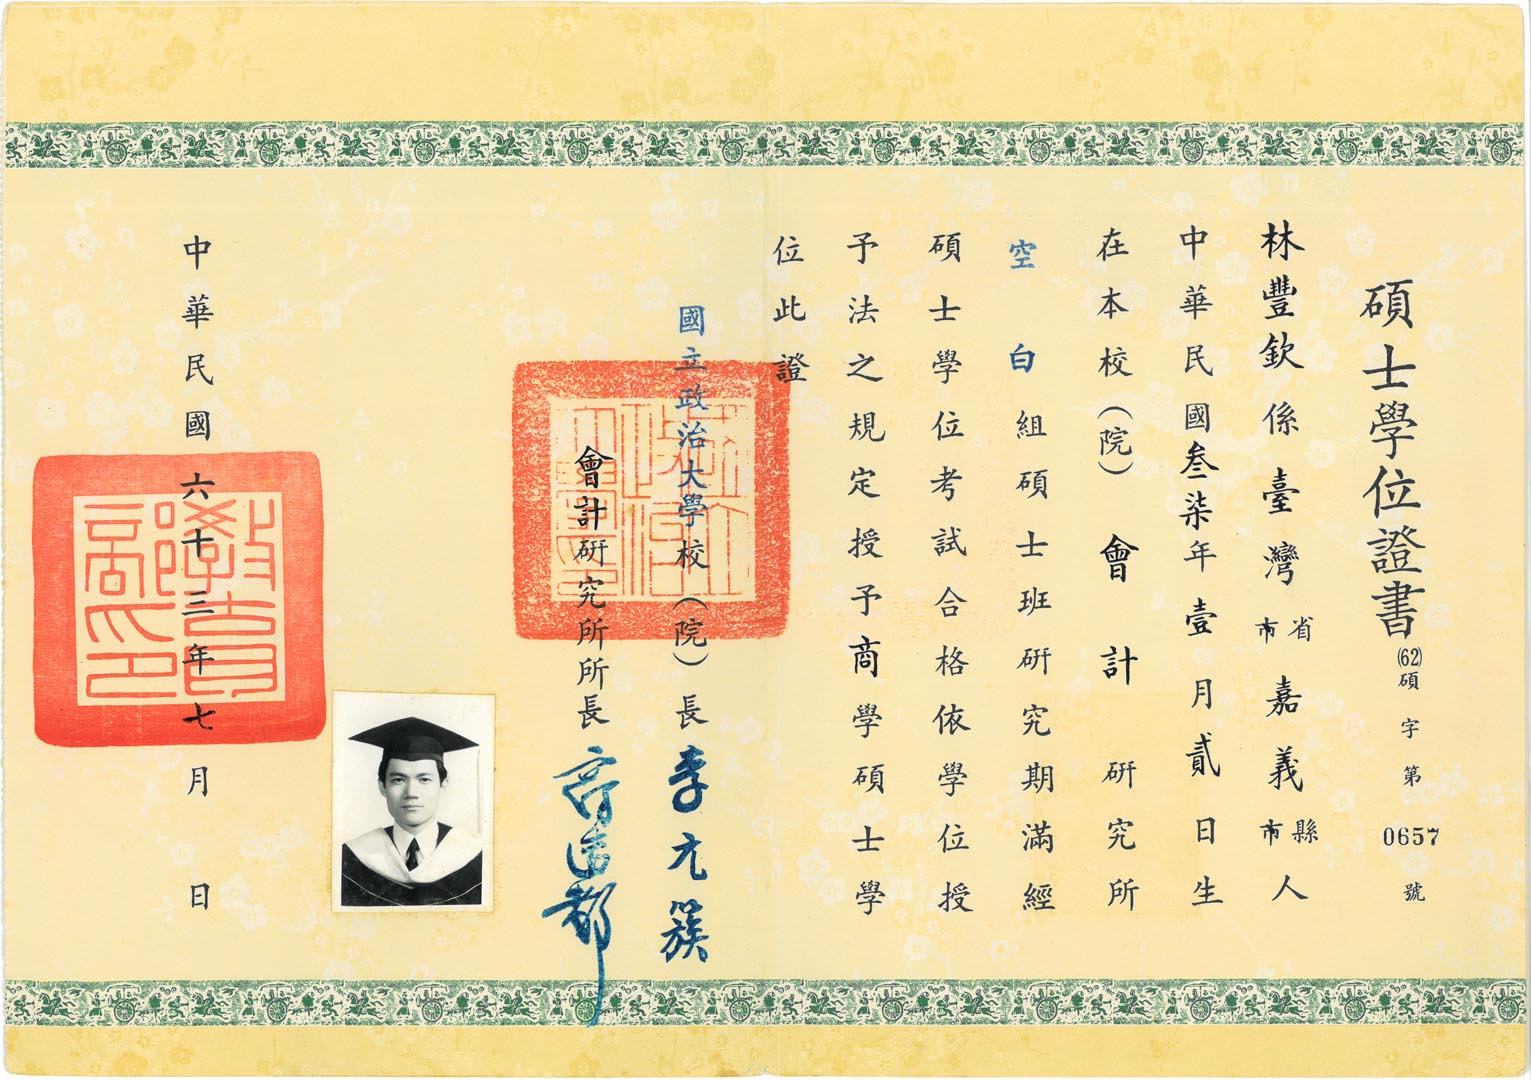 碩士學位證書
(62)碩字第0657號
林豐欽係臺灣省市嘉義縣市人
中華民國叁柒年壹月貳日生
在本校(院)會計研究所
空白組碩士班研究期滿經
碩士學位考試合格依學位授
予法之規定授予商學碩士學
位此證
國立政治大學校(院)長李元簇
會計研究所所長
中華民國六十三年七月 日
教育部印